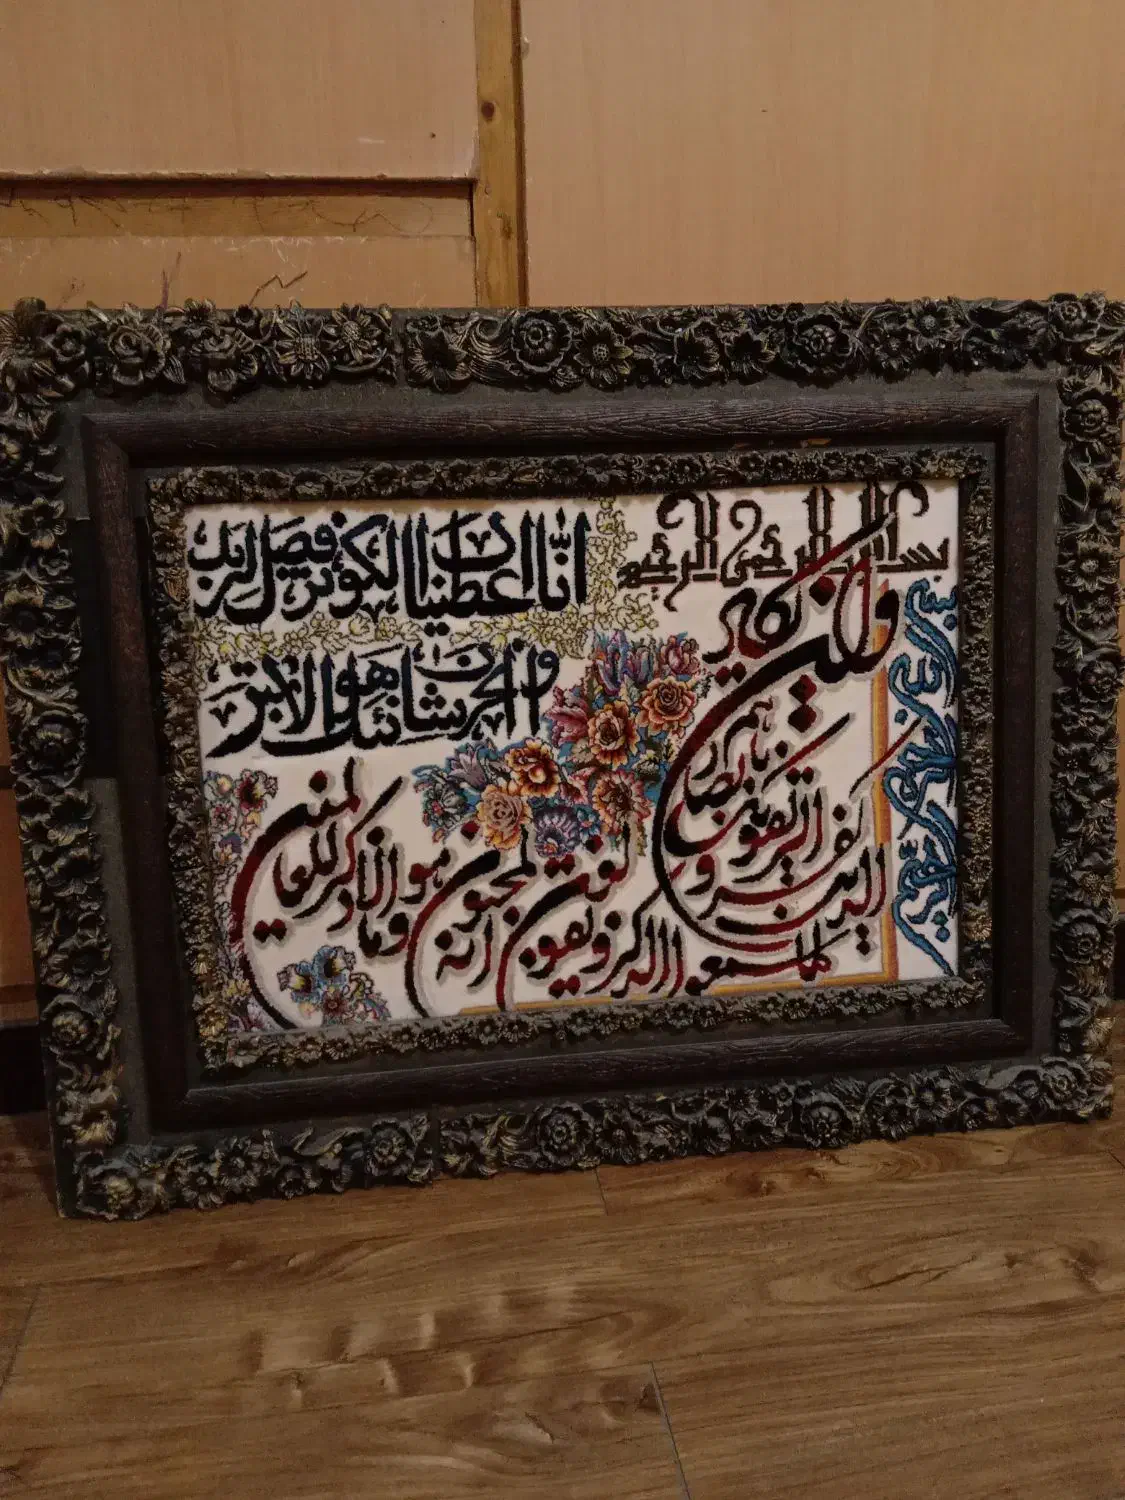 بسم الله الرحمن الرحیم
انا اعطیناک الکوثر فصل لربک
وانحر ان شانئک هو الابتر
وان یکاد الذین کفروا لیزلقونک بابصارهم
لما سمعوا الذکر ویقولون انه لمجنون
وما هو الا ذکر للعالمین